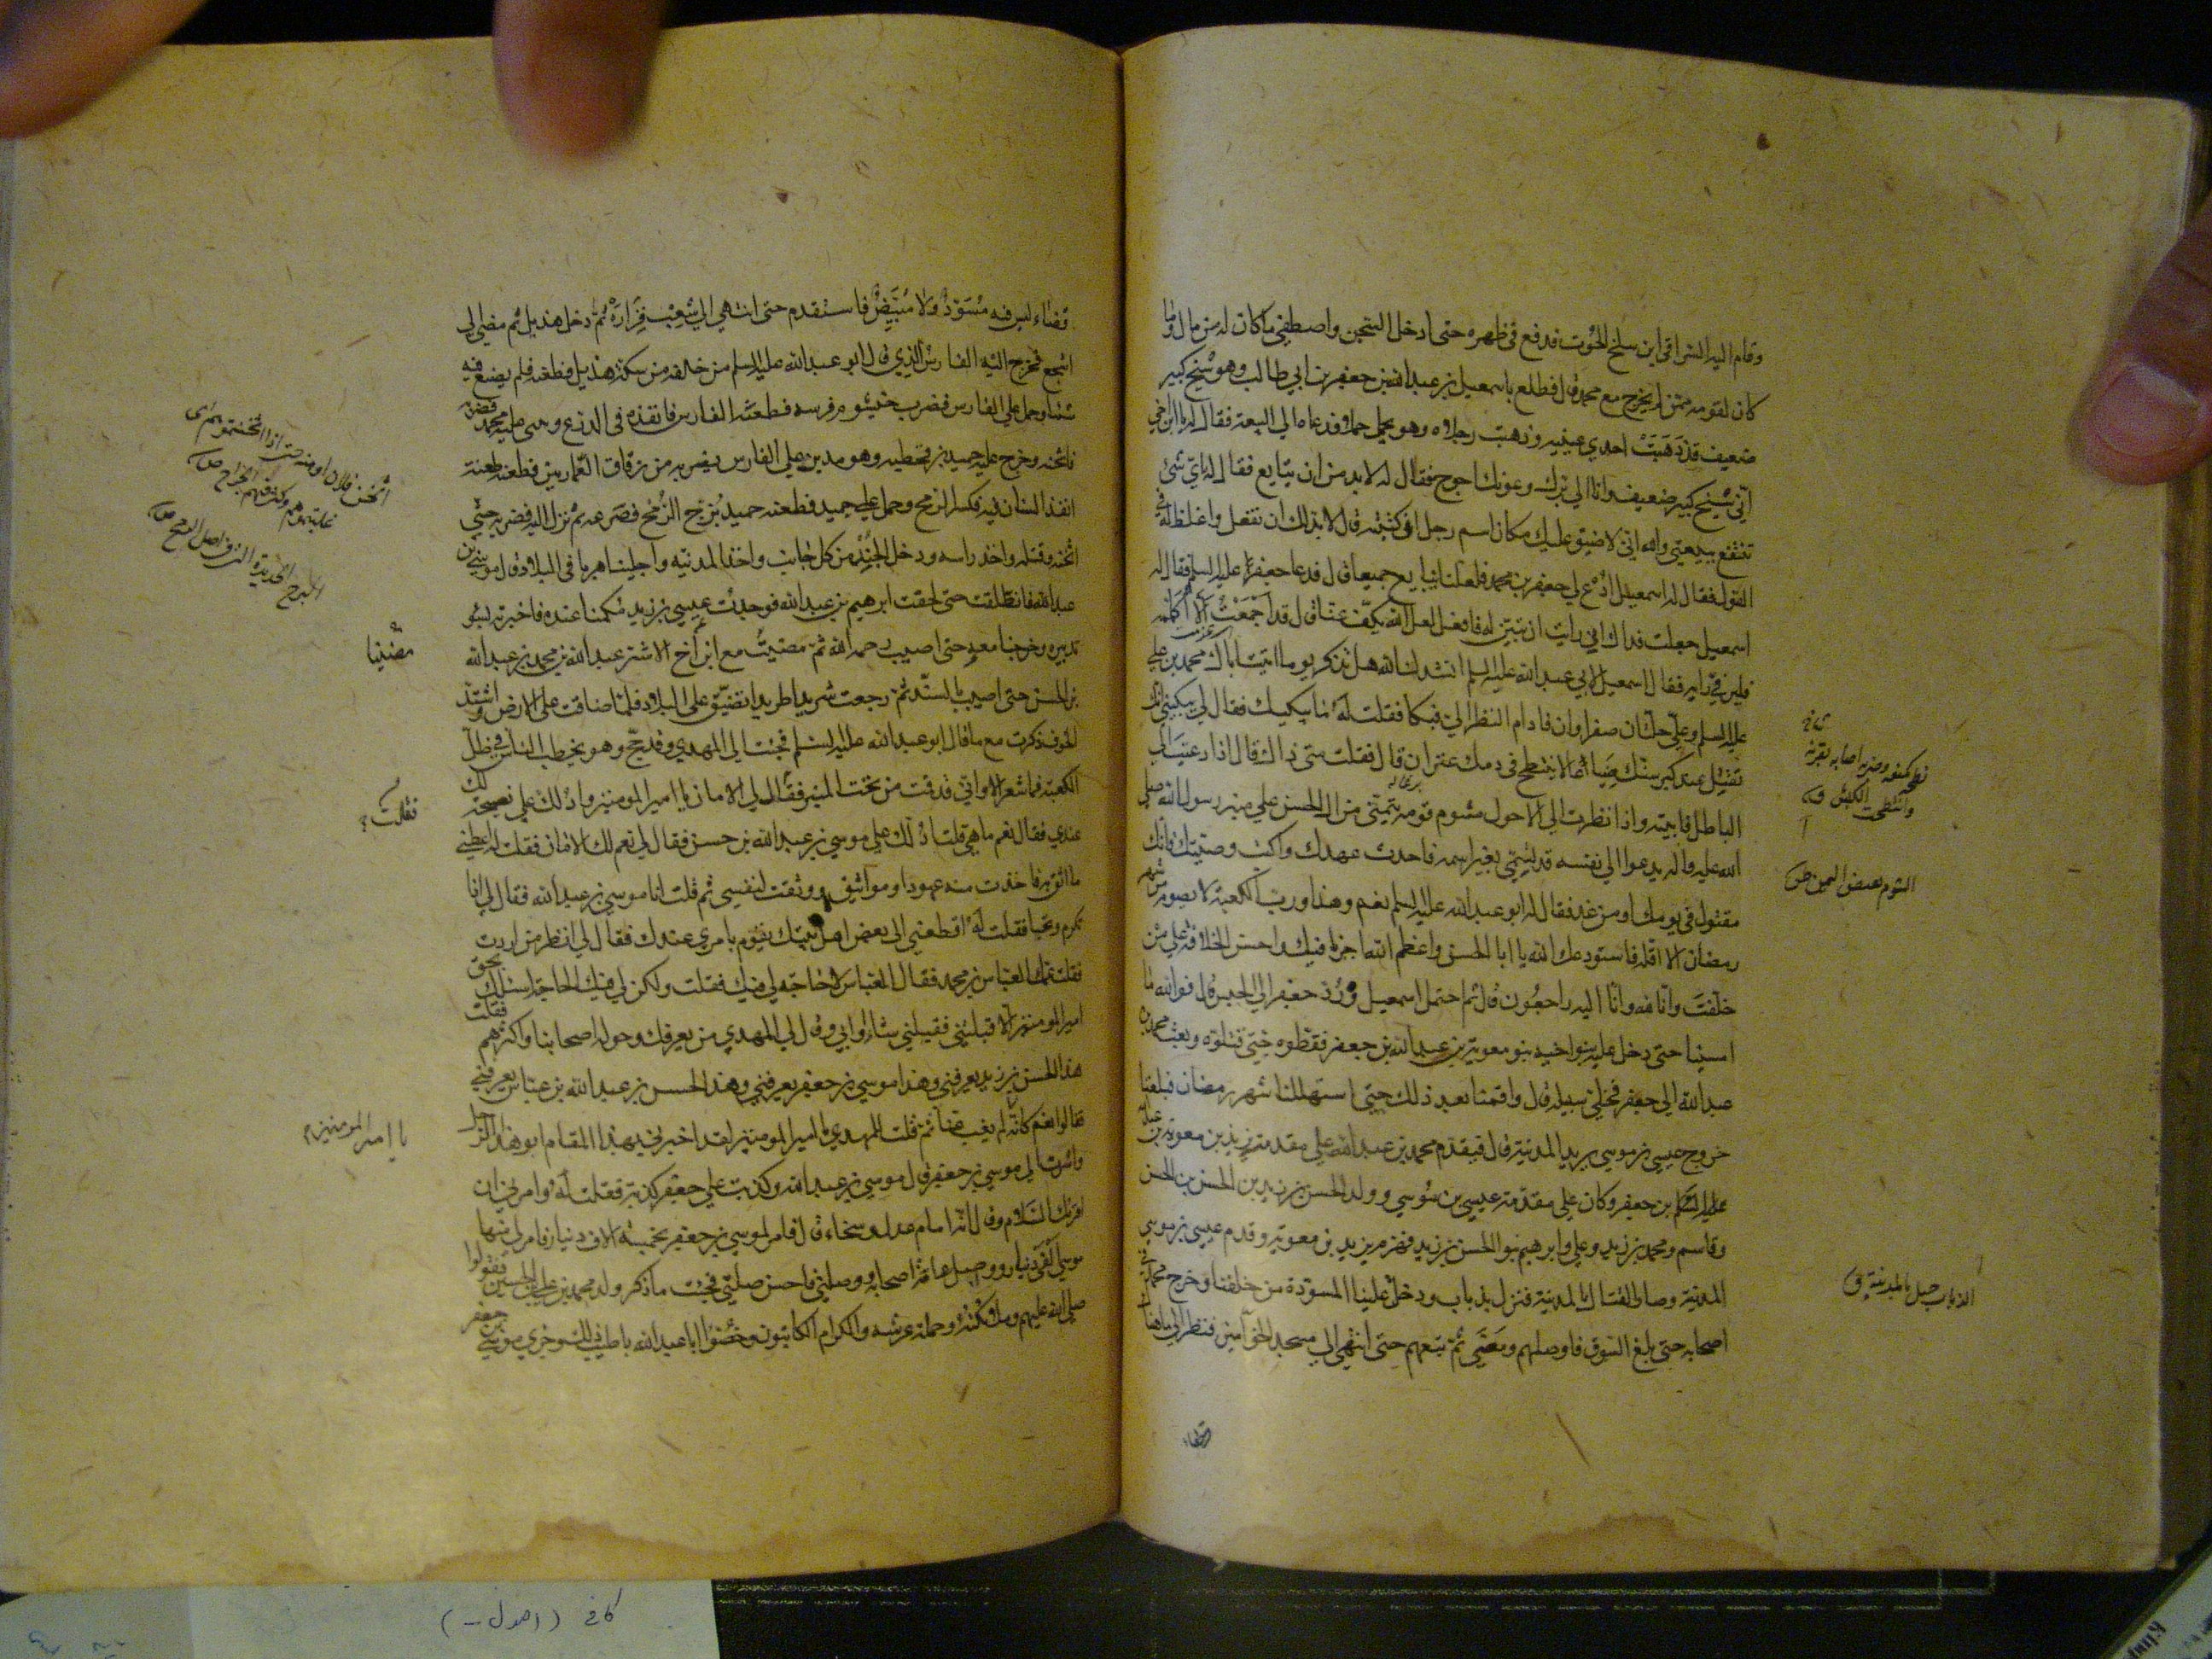 وقام اليه السراقي ابن سلخ الحوت فدفع في ظهره حتى أدخل السجن واصطفى ما كان له من مال وما
كان لقومه ممن لم يخرج مع محمد قال فطلع باسمعيل بن عبد الله بن جعفر بن ابي طالب وهو شيخ كبير
ضعيف قد ذهبت احدي عينيه وذهبت رجلاه وهو يحمل حملا فدعاه الي البيعة فقال له يا ابن اخي
اني شيخ كبير ضعيف وانا الي برك وعونك احوج فقال له لا بد من ان تبايع فقال له واي شئ
تنتفع ببيعتي والله اني لاضيق عليك مكان اسم رجل ان كتبته قال لا بد لك ان تفعل واغلظ له في
القول فقال له اسمعيل ادع لي جعفر بن محمد فلعلنا نبايع جميعا قال فدعا جعفرا عليه السلم فقال له
اسمعيل جعلت فداك ان رايت ان تبين له فافعل لعل الله يكفه عنا قال قد اجمعت الا اكلمه
فلير في رايه فقال اسمعيل لابي عبد الله عليه السلم انشدك الله هل تذكر يوما اتيت اباك محمد بن علي
عليه السلم وعلي حلتان صفراوان فادام النظر الي فبكا فقلت له ما يبكيك فقال لي يبكيني انك
تقتل عند كبر سنك ضياعا لا ينتطح في دمك عنزان قال فقلت متى ذاك قال اذا دعيت الى
الباطل فابيته واذا نظرت الي الاحول مشوم قومه ينتمي من ال الحسن علي منبر رسول الله صلي
الله عليه واله يدعوا الي نفسه قد تسمي بغير اسمه فاحدث عهدك واكتب وصيتك فانك
مقتول في يومك او من غد فقال له ابو عبد الله عليه السلم نعم وهذا ورب الكعبة لا يصوم من شهر
رمضان الا اقله فاستودعك الله يا ابا الحسن واعظم الله اجرنا فيك واحسن الخلافة علي من
خلفت وانا لله وانا اليه راجعون قال ثم احتمل اسمعيل ورد جعفر الي الحبس قال فوالله ما
امسينا حتى دخل عليه بنو اخيه بنو معوية بن عبد الله بن جعفر فتوطوه حتى قتلوه وبعث محمد بن
عبد الله الي جعفر فخلي سبيله قال واقمنا بعد ذلك حتى استهللنا شهر رمضان فبلغنا
خروج عيسي بن موسي يريد المدينة قال فتقدم محمد بن عبد الله علي مقدمته يزيد بن معوية بن
بن جعفر وكان علي مقدمة عيسي بن موسي ولد الحسن بن زيد بن الحسن بن الحسن
وقاسم ومحمد بن زيد وعلي وابرهيم بنو الحسن بن زيد فهزم يزيد بن معوية وقدم عيسي بن موسي
المدينة وصار القتال بالمدينة فنزل بذباب ودخلت علينا المسودة من خلفنا وخرج محمد في
اصحابه حتى بلغ السوق فاوصلهم ومضي ثم تبعهم حتى انتهي الي مسجد الخوامين فنظر الي ما هناك
الشوم بعض اليمين
الذباب جبل بالمدينة ق
فضاء ليس فيه مسود ولا مبيض فاستقدم حتى انتهي الي شعب فزارة ثم دخل هذيل ثم مضي الي
اشجع فخرج اليه الفارس الذي قال ابو عبد الله عليه السلم من خلفه من سكة هذيل فطعنه فلم يصنع فيه
شيئا وحمل علي الفارس فضرب خيشوم فرسه فطعنه الفارس فانفذه في الدرع وحمل عليه محمد فضربه
فاثخنه وخرج عليه حميد بن قحطبة وهو مدبر علي الفارس يضربه من زقاق العماريين فطعنه طعنة
انفذ السنان فيه فكسر الرمح وحمل علي حميد فطعنه حميد بزج الرمح فصرعه ثم نزل اليه فضربه حتى
اثخنه وقتله واخذ راسه ودخل الجند من كل جانب واخذ المدينة واجلينا هربا في البلاد قال موسي بن
عبد الله فانطلقت حتى لحقت ابرهيم بن عبد الله فوجدت عيسي بن زيد مكمنا عنده فاخبرته بسوء
تدبيره وخرجنا معه حتى اصيب رحمه الله ثم مضيت مع ابن اخي الاشتر عبد الله بن محمد بن عبد الله
بن الحسن حتى اصيب بالسند ثم رجعت شريدا طريدا تضيق علي البلاد فلما ضاقت علي الارض واشتد
الخوف ذكرت مع ما قال ابو عبد الله عليه السلم فجئت الي المهدي وقد حج وهو يخطب الناس في ظل
الكعبة فما شعر الا واني قد قمت من تحت المنبر فقال لي الامان يا امير المومنين وادلك علي نصيحة لك
عندي فقال نعم ما هي قلت ادلك علي موسي بن عبد الله بن حسن فقال لي نعم لك الامان فقلت له اعطني
ما اثق به فاخذت منه عهودا ومواثيق ووثقت لنفسي ثم قلت انا موسي بن عبد الله فقال لي اذا
تكرم وتحبا فقلت له اقطعني الى بعض اهل بيتك يقوم بامري عندك فقال لي انظر من اردت
فقلت عمك العباس بن محمد فقال العباس لا حاجة لي فيك فقلت ولكن لي فيك الحاجة اسئلك بحق
امير المومنين الا قبلتني فقبلني شاء او ابي وقال لي المهدي من يعرفك وحوله اصحابنا او اكثرهم فقلت
هذا الحسن بن زيد يعرفني وهذا موسي بن جعفر يعرفني وهذا الحسن بن عبد الله بن عباس يعرفني
فقالوا نعم كانه لم يغب عنا ثم قلت للمهدي يا امير المومنين لقد اخبرني بهذا المقام ابو هذا الرجل
واشرت الي موسي بن جعفر قال موسي بن عبد الله وكذبت علي جعفر كذبة فقلت له وامرني ان
اقرئك السلام وقال انه امام عدل وسخاء قال فامر لموسي بن جعفر بخمسة الاف دينار فامر لي منها
موسي بالفي دينار ووصل عامة اصحابه ووصلني فاحسن صلتي فحيث ما ذكر ولد محمد بن علي بن الحسين فقولوا
صلي الله عليهم وملئكته وحملة عرشه والكرام الكاتبون وخصوا ابا عبد الله باطيب ذلك وجزي موسي بن جعفر
مضينا
فقلت
يا امير المومنين
كافى (اصول -)